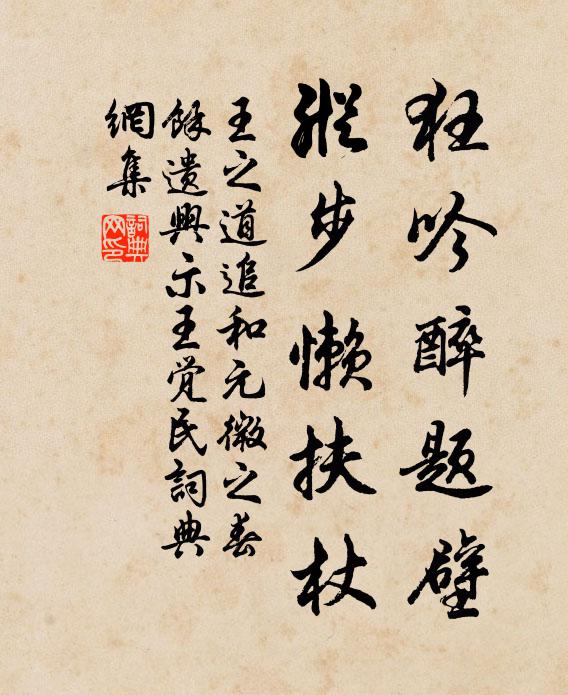 狂吟醉题壁
纵步懒扶杖
王之道追和元微之春
馀遗兴示王觉民词典
網集
詞典网印